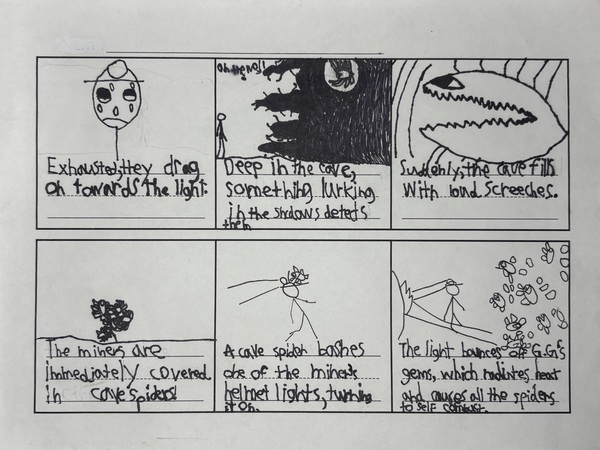 Exhausted, they drag
on towards the light.
Deep in the cave,
something lurking
in the shdows detects
them.
Suddenly, the cave fills
with loud screeches.
The miners are
immediately covered
in cave spiders!
A cave spider bashes
one of the miners
helmet lights, turning
it on.
The light bounces off G.G's
gems, which radiates heat
and causes all the spiders
to self combust.